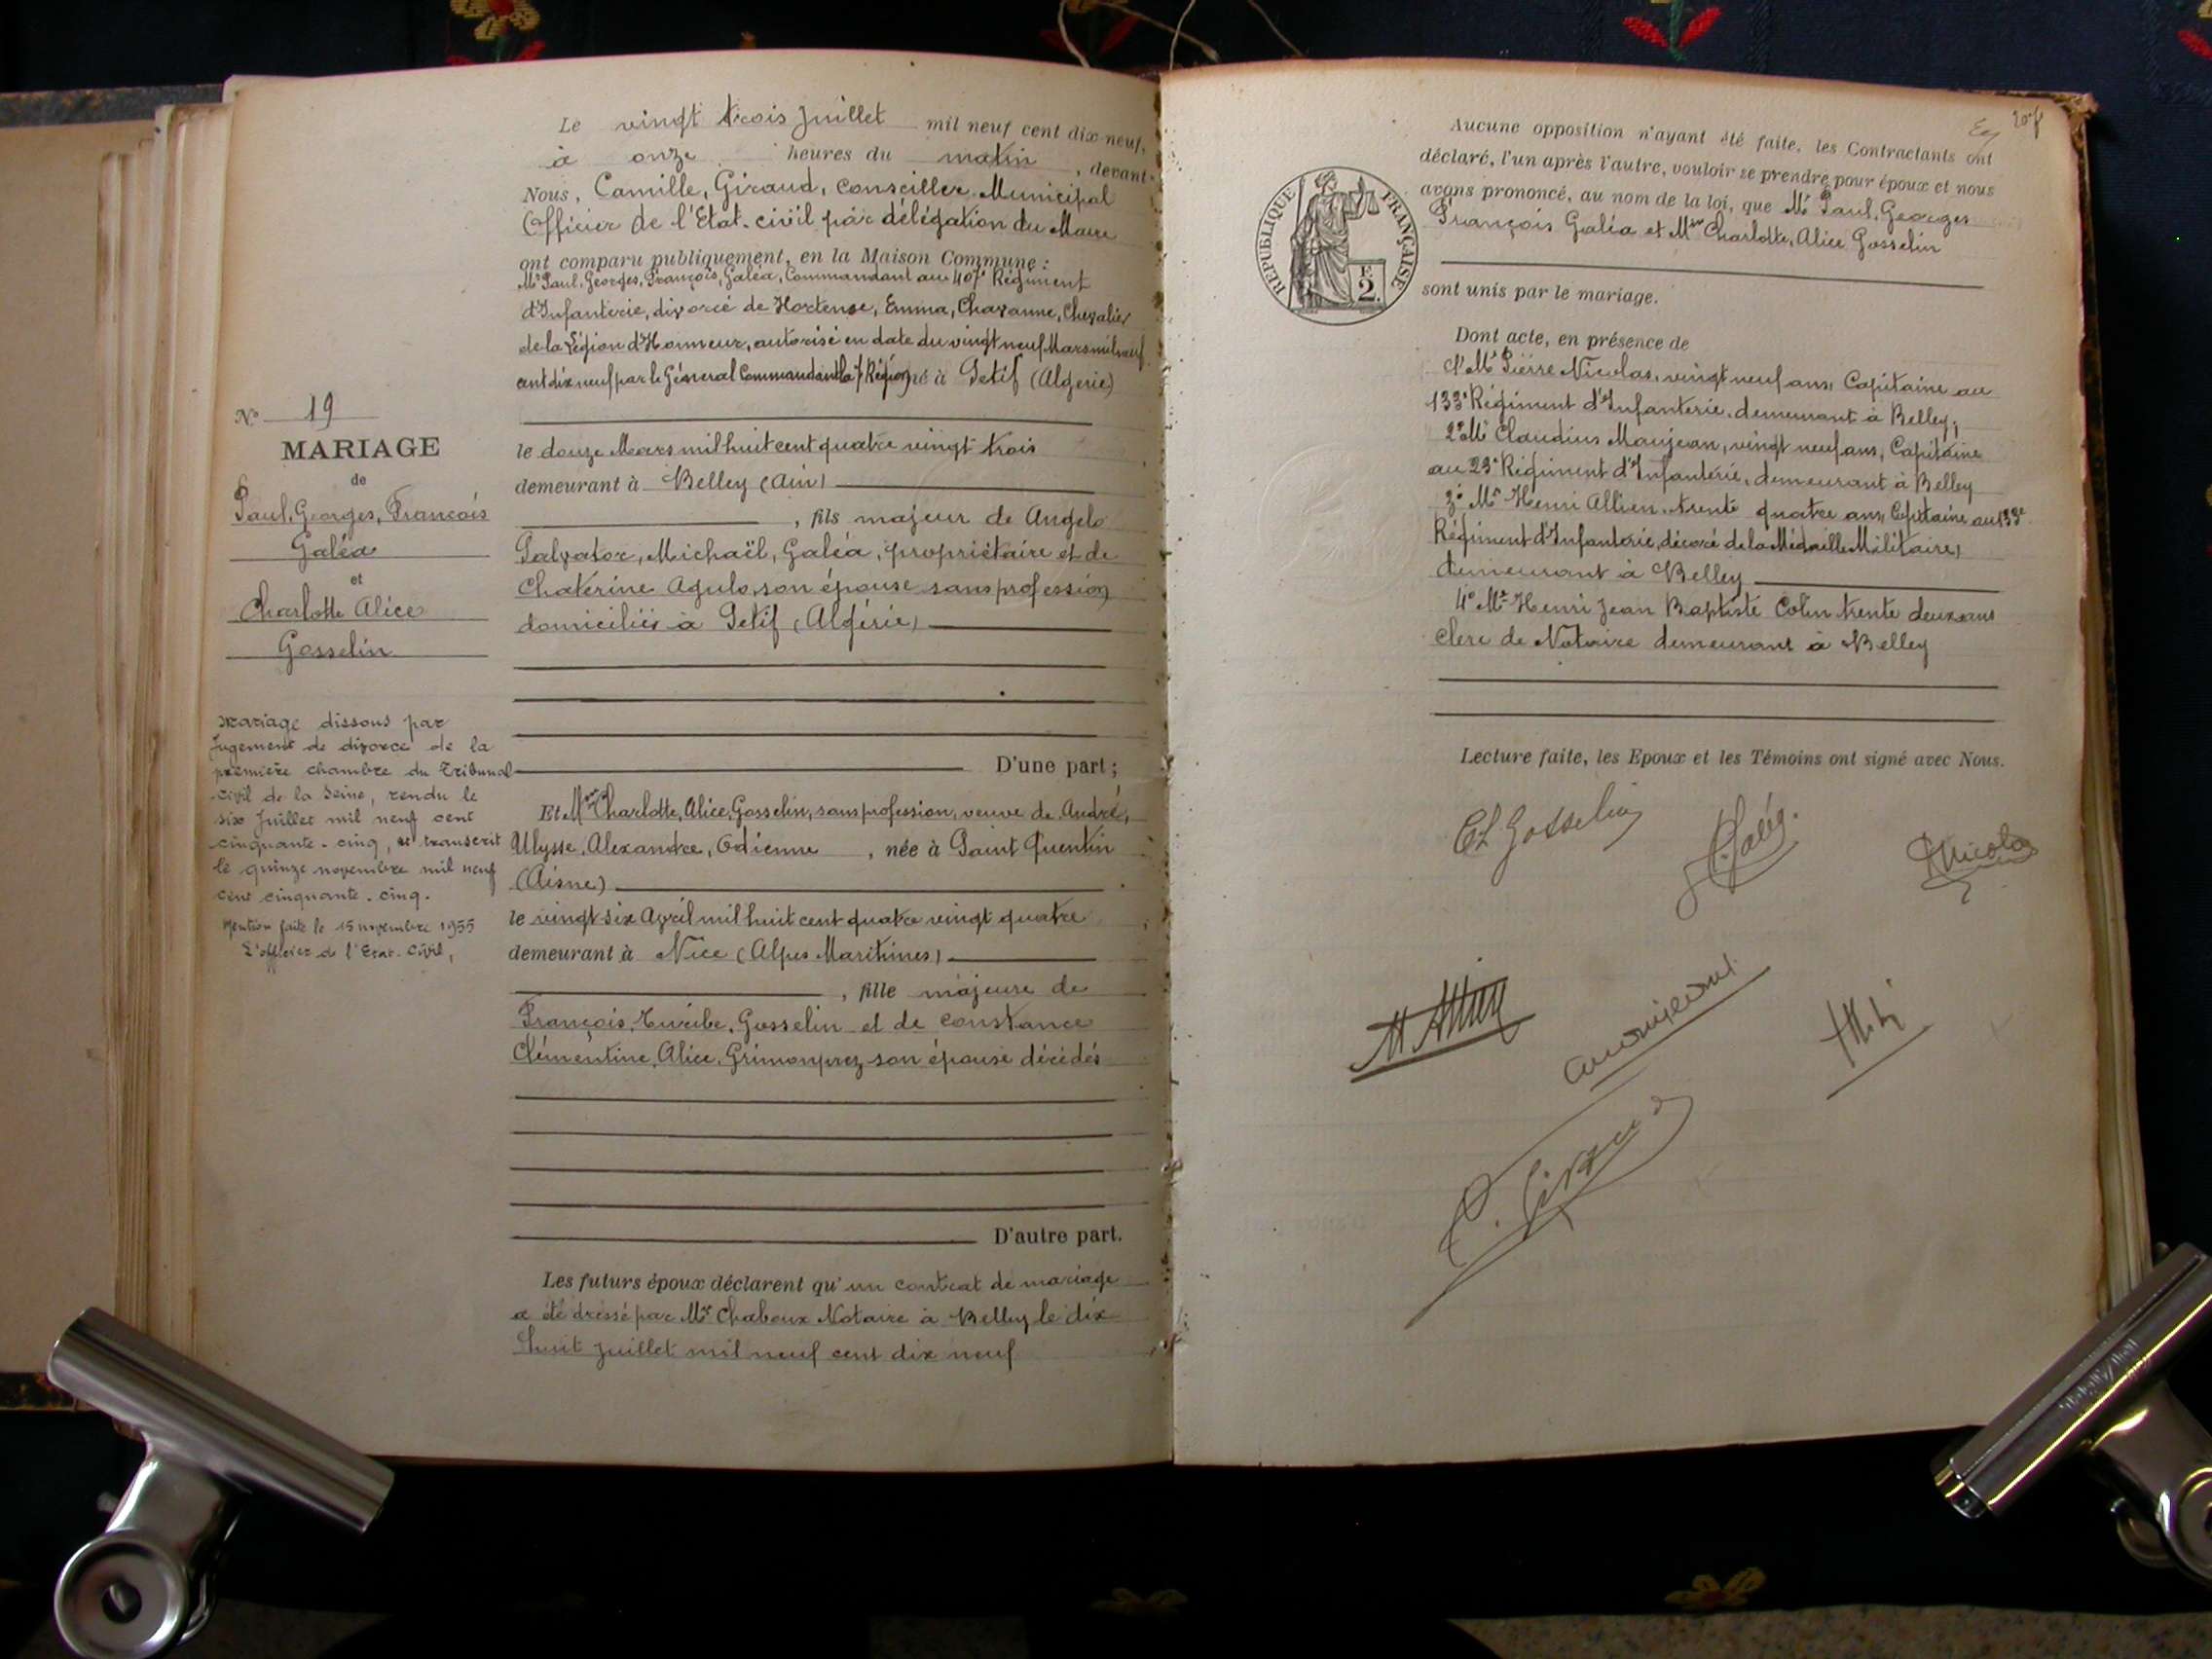 Le vingt trois Juillet mil neuf cent dix neuf,
à onze heures du matin, devant
Nous, Camille, Giraud, Conseiller Municipal
Officier de l'Etat-civil par délégation du Maire
ont comparu publiquement, en la Maison Commune :
Mr Paul, Georges, François, Galéa, Commandant au 407e Régiment
d'Infanterie, divorcé de Hortense, Emma, Chavanne, Chevalier
de la Légion d'Honneur, autorisé en date du vingt neuf Mars mil neuf
cent dix neuf par le Général Commandant la 7e Région, né à Setif (Algerie)
le douze Mars mil huit cent quatre vingt trois
demeurant à Belley (Ain)
, fils majeur de Angelo
Salvator, Michaël, Galéa, propriétaire et de
Chaterine Agulo, son épouse sans profession
domiciliés à Setif (Algérie)
D'une part ;
Et Mme Charlotte, Alice, Gosselin, sans profession, veuve de André,
Ulysse, Alexandre, Odienne, née à Saint Quentin
(Aisne)
le vingt six Avril mil huit cent quatre vingt quatre
demeurant à Nice (Alpes Maritimes)
, fille majeure de
François, Gosselin et de Constance
Clémentine, Alice, Grimonprez, son épouse décédés
D'autre part.
Les futurs époux déclarent qu'un contrat de mariage
a été dressé par Me Chaboux Notaire à Belley le dix
huit Juillet mil neuf cent dix neuf
No 19
MARIAGE
de
Paul, Georges, François
Galéa
et
Charlotte Alice
Gosselin
Mariage dissous par
Jugement de divorce de la
première chambre du Tribunal
civil de la Seine, rendu le
six Juillet mil neuf cent
cinquante-cinq, et transcrit
le quinze novembre mil neuf
cent cinquante-cinq.
Mention faite le 15 novembre 1955
L'officier de l'Etat-Civil,
Aucune opposition n'ayant été faite, les Contractants ont
déclaré, l'un après l'autre, vouloir se prendre pour époux et nous
avons prononcé, au nom de la loi, que Mr Paul, Georges
François Galéa et Mme Charlotte, Alice Gosselin
RÉPUBLIQUE FRANÇAISE
2
sont unis par le mariage.
Dont acte, en présence de
1° Mr Pierre Nicolas, vingt neuf ans, Capitaine au
133e Régiment d'Infanterie, demeurant à Belley ;
2° Mr Claudius Maujean, vingt neuf ans, Capitaine
au 23e Régiment d'Infanterie, demeurant à Belley
3° Mr Henri Allien, trente quatre ans, Capitaine au 133e
Régiment d'Infanterie, décoré de la Médaille Militaire,
demeurant à Belley
4° Mr Henri Jean Baptiste Colin trente deux ans
clerc de Notaire demeurant à Belley
Lecture faite, les Epoux et les Témoins ont signé avec Nous.
Gosselin
Galéa
Nicolas
C. Giraud